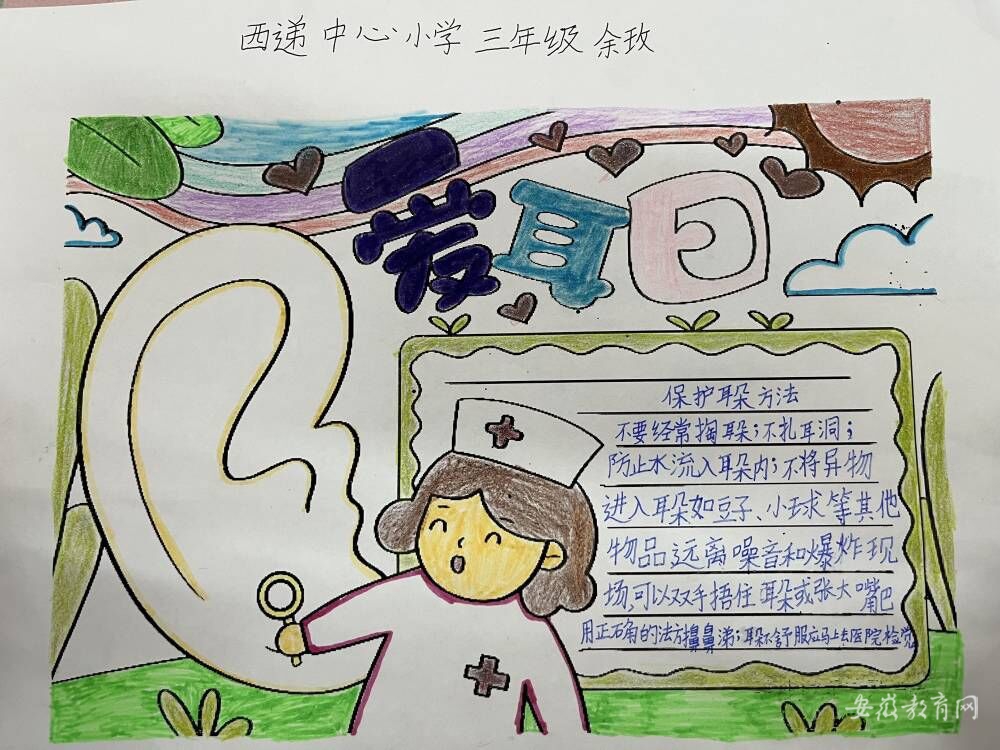 西递中心小学 三年级 余玫
爱耳日
保护耳朵方法
不要经常掏耳朵;不扎耳洞;
防止水流入耳朵内;不将异物
进入耳朵如豆子、小球等其他
物品远离噪音和爆炸现
场,可以双手捂住耳朵或张大嘴巴
用正确的法方擤鼻涕;耳朵不舒服应马上去医院检
安徽教育网